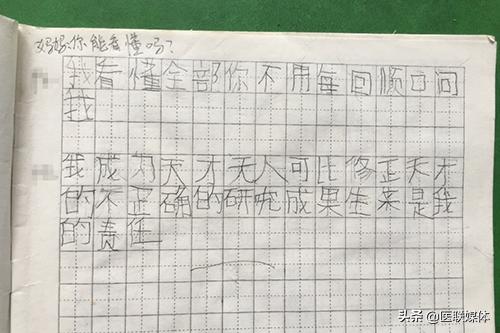 妈妈:你能看懂吗?
我看懂全部你不用每回顺口问
我
我成为天才无人可比修正天才
的不正确的研究成果生来是我
的责任
头条@医联媒体